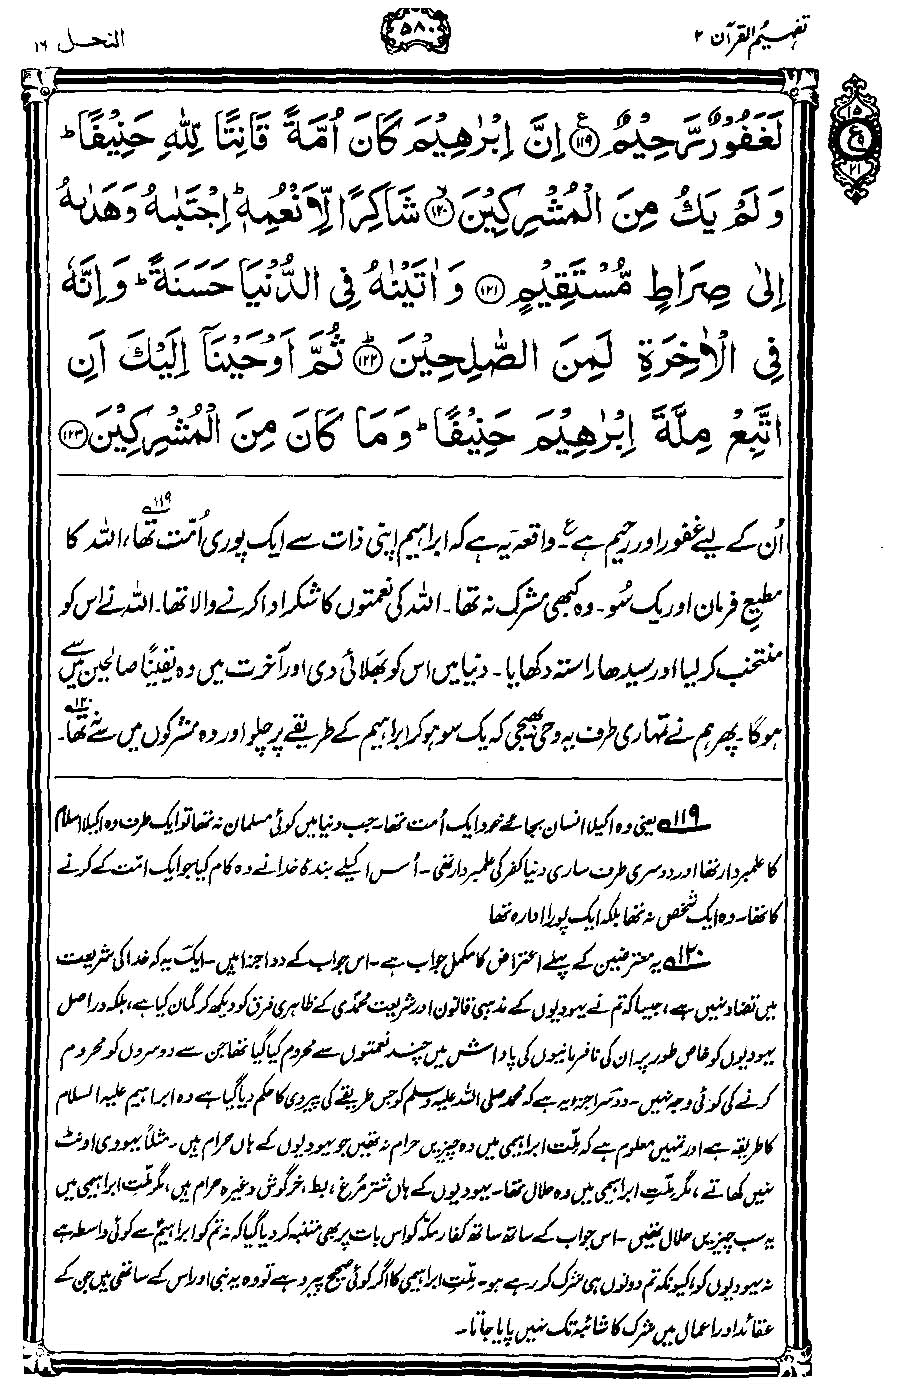 تفہیم القرآن ۲
۵۸۰
النحل ۱۶
لَغَفُوْرٌ رَّحِيْمٌ ﴿۱۱۹﴾ ع اِنَّ اِبْرٰهِيْمَ كَانَ اُمَّةً قَانِتًا لِّلّٰهِ حَنِيْفًا ؕ
وَلَمْ يَكُ مِنَ الْمُشْرِكِيْنَ ﴿۱۲۰﴾ شَاكِرًا لِّاَنْعُمِهٖ ؕ اِجْتَبٰىهُ وَهَدٰىهُ
اِلٰى صِرَاطٍ مُّسْتَقِيْمٍ ﴿۱۲۱﴾ وَاٰتَيْنٰهُ فِي الدُّنْيَا حَسَنَةً ؕ وَاِنَّهٗ
فِي الْاٰخِرَةِ لَمِنَ الصّٰلِحِيْنَ ﴿۱۲۲﴾ ؕ ثُمَّ اَوْحَيْنَآ اِلَيْكَ اَنِ
اتَّبِعْ مِلَّةَ اِبْرٰهِيْمَ حَنِيْفًا ؕ وَمَا كَانَ مِنَ الْمُشْرِكِيْنَ ﴿۱۲۳﴾
ع
اُن کے لیے غفور اور رحیم ہے ؏۔ واقعہ یہ ہے کہ ابراہیم اپنی ذات سے ایک پوری اُمّت تھا ۱۱۹، اللہ کا
مطیعِ فرمان اور یک سُو۔ وہ کبھی مشرک نہ تھا۔ اللہ کی نعمتوں کا شکر ادا کرنے والا تھا۔ اللہ نے اس کو
منتخب کر لیا اور سیدھا راستہ دکھایا۔ دنیا میں اس کو بھلائی دی اور آخرت میں وہ یقیناً صالحین میں سے
ہوگا۔ پھر ہم نے تمہاری طرف یہ وحی بھیجی کہ یک سو ہو کر ابراہیم کے طریقے پر چلو اور وہ مشرکوں میں سے نہ تھا ۱۲۰۔
۱۱۹ یعنی وہ اکیلا انسان بجائے خود ایک اُمت تھا۔ جب دنیا میں کوئی مسلمان نہ تھا تو ایک طرف وہ اکیلا اسلام
کا علمبردار تھا اور دوسری طرف ساری دنیا کفر کی علمبردار تھی۔ اُس اکیلے بندۂ خدا نے وہ کام کیا جو ایک امّت کے کرنے
کا تھا۔ وہ ایک شخص نہ تھا بلکہ ایک پورا ادارہ تھا
۱۲۰ یہ معترضین کے پہلے اعتراض کا مکمل جواب ہے۔ اس جواب کے دو اجزا ہیں۔ ایک یہ کہ خدا کی شریعت
میں تضاد نہیں ہے، جیسا کہ تم نے یہودیوں کے مذہبی قانون اور شریعت محمدی کے ظاہری فرق کو دیکھ کر گمان کیا ہے، بلکہ دراصل
یہودیوں کو خاص طور پر ان کی نافرمانیوں کی پاداش میں چند نعمتوں سے محروم کیا گیا تھا جن سے دوسروں کو محروم
کرنے کی کوئی وجہ نہیں۔ دوسرا جز یہ ہے کہ محمد صلی اللہ علیہ وسلم کو جس طریقے کی پیروی کا حکم دیا گیا ہے وہ ابراہیم علیہ السلام
کا طریقہ ہے اور تمہیں معلوم ہے کہ ملّت ابراہیمی میں وہ چیزیں حرام نہ تھیں جو یہودیوں کے ہاں حرام ہیں۔ مثلاً یہودی اونٹ
نہیں کھاتے، مگر ملّتِ ابراہیمی میں وہ حلال تھا۔ یہودیوں کے ہاں شتر مرغ، بط، خرگوش وغیرہ حرام ہیں، مگر ملّت ابراہیمی میں
یہ سب چیزیں حلال تھیں۔ اس جواب کے ساتھ ساتھ کفار مکّہ کو اس بات پر بھی متنبہ کر دیا گیا کہ نہ تم کو ابراہیمؑ سے کوئی واسطہ ہے
نہ یہودیوں کو، کیونکہ تم دونوں ہی شرک کر رہے ہو۔ ملّتِ ابراہیمی کا اگر کوئی صحیح پیرو ہے تو وہ یہ نبی اور اس کے ساتھی ہیں جن کے
عقائد اور اعمال میں شرک کا شائبہ تک نہیں پایا جاتا۔